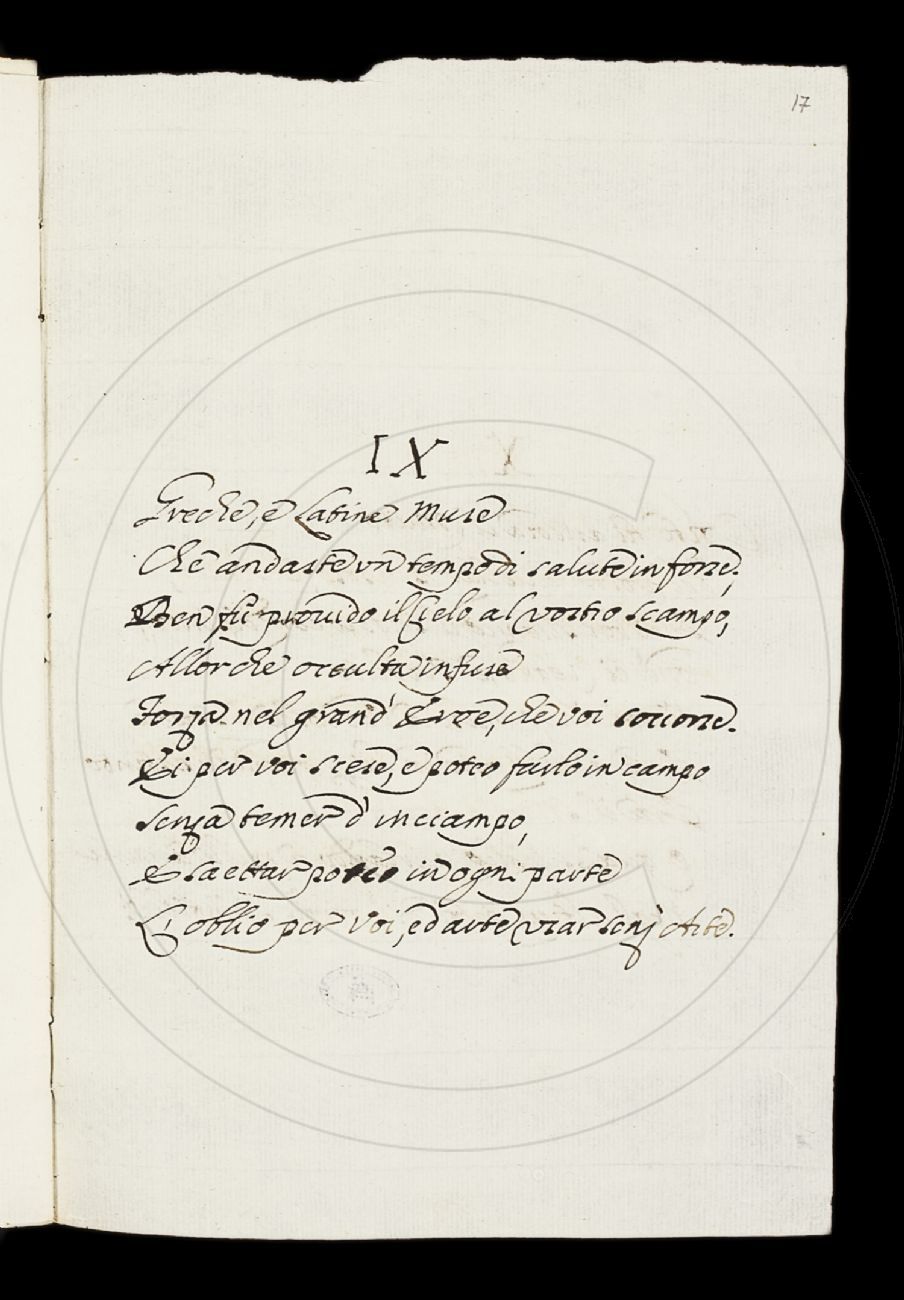 17
IX
Greche, e Latine Muse
Che andaste un tempo di salute in forse;
Ben fù prouido il Cielo al vostro scampo,
Allor che occulta infuse
Forza nel grand' Eroe, che voi soccorse.
Ei per voi scese, e poteo farlo in campo
senza temer d' inciampo,
E saettar poteo in ogni parte
L' oblio per voi, ed arte usar senz Arte.